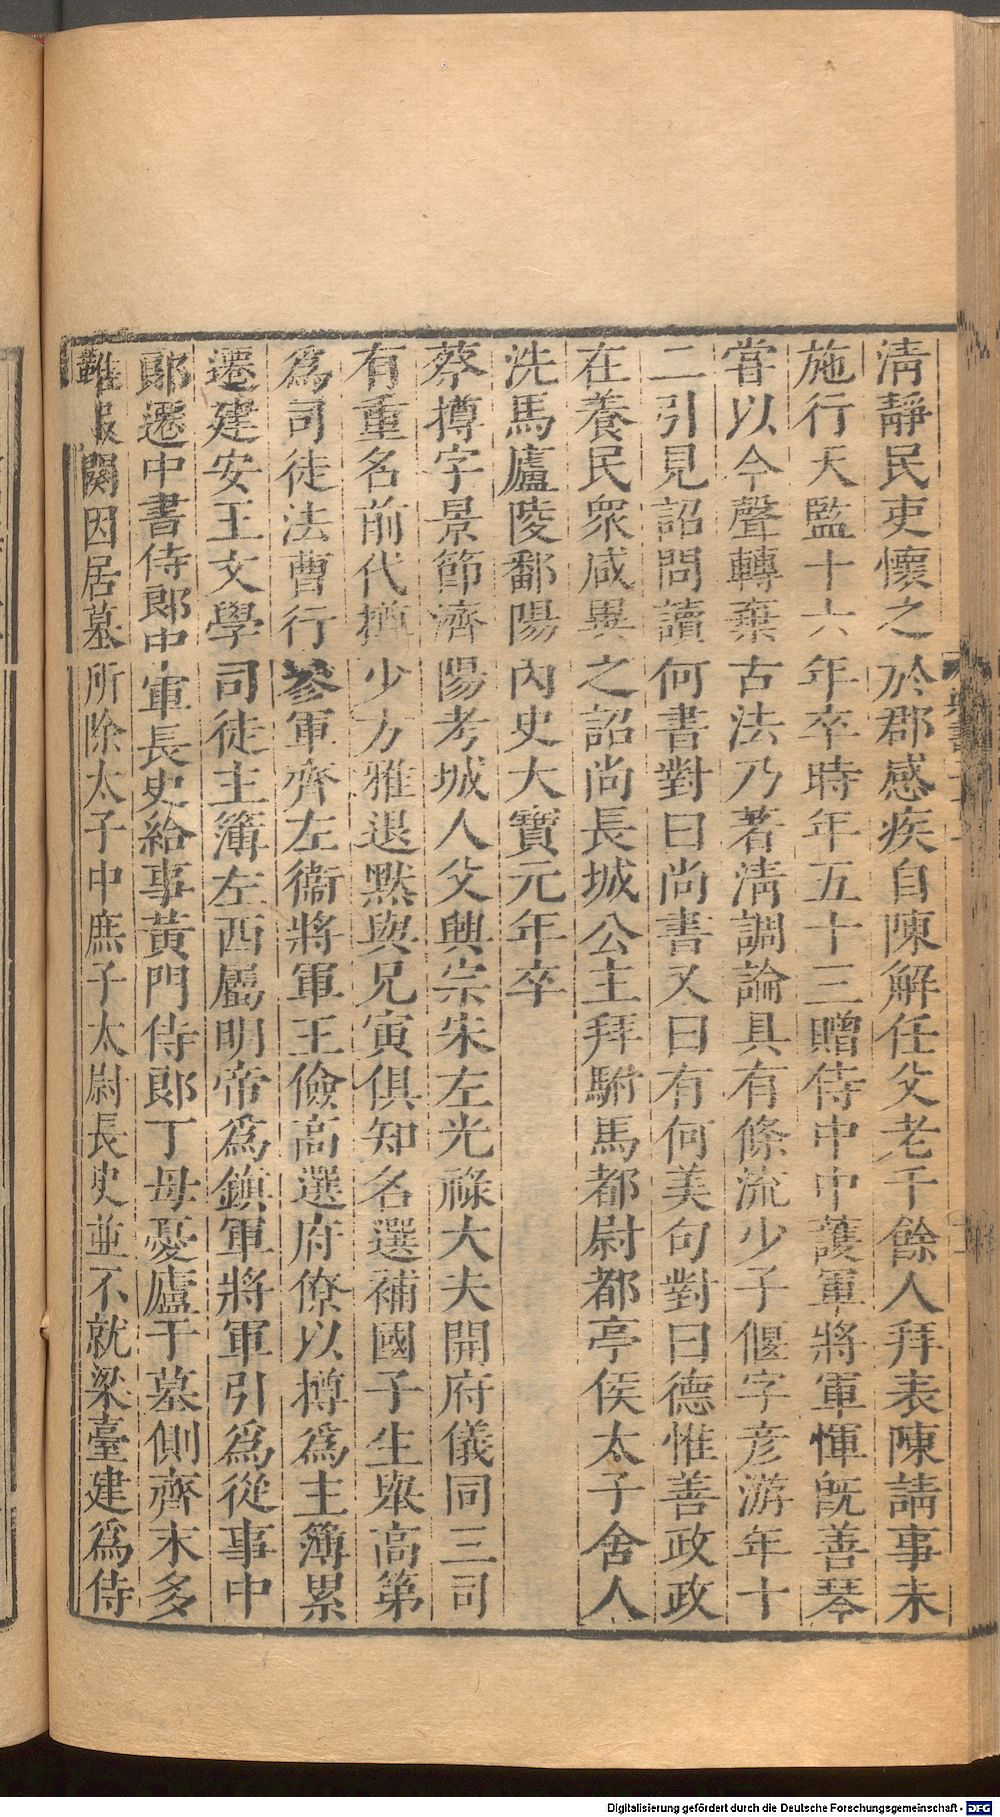 清靜民吏懷之於郡感疾自陳解任父老千餘人拜表陳請事未
施行天監十六年卒時年五十三贈侍中中護軍將軍惲旣善琴
嘗以今聲轉棄古法乃著淸調論具有條流少子偃字彦游年十
二引見詔問讀何書對曰尚書又曰有何美句對曰德惟善政政
在養民衆咸異之詔尚長城公主拜駙馬都尉都亭侯太子舍人
洗馬廬陵鄱陽內史大寶元年卒
蔡撙字景節濟陽考城人父興宗宋左光祿大夫開府儀同三司
有重名前代撙少方雅退默與兄寅俱知名選補國子生舉高第
爲司徒法曹行參軍齊左衞將軍王儉高選府僚以撙爲主簿累
遷建安王文學司徒主簿左西屬明帝爲鎭軍將軍引爲從事中
郞遷中書侍郞中軍長史給事黃門侍郞丁母憂廬于墓側齊末多
難服闋因居墓所除太子中庶子太尉長史並不就梁臺建爲侍
Digitalisierung gefördert durch die Deutsche Forschungsgemeinschaft - DFG